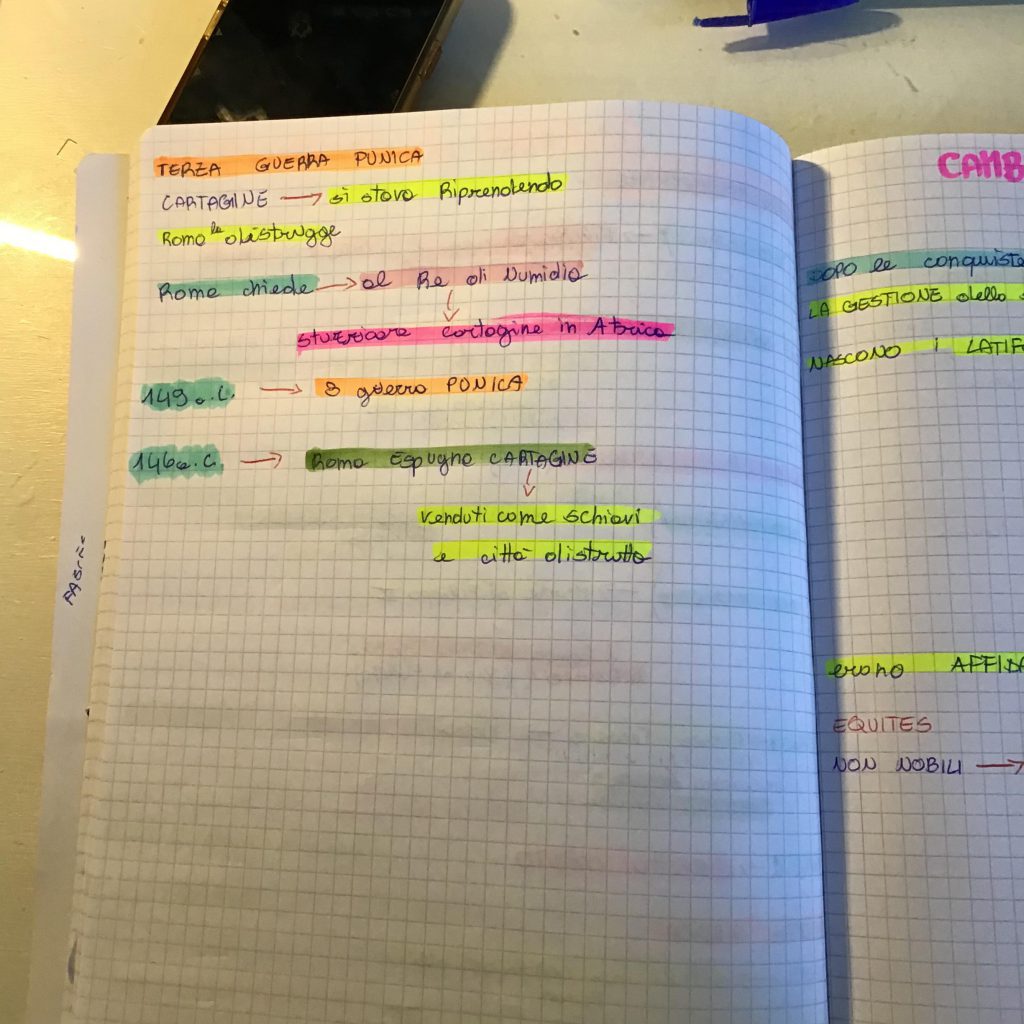 TERZA GUERRA PUNICA
CARTAGINE → si stava Riprendendo
Roma la distrugge
Roma chiede → al Re di Numidia
↓
stuzzicare cartagine in Africa
149 a.C. → 3 guerra PUNICA
146 a.C. → Roma Espugna CARTAGINE
↓
venduti come schiavi
e città distrutta
CAMB
DOPO le conquiste
LA GESTIONE dello
NASCONO i LATIF
erano AFFIDA
EQUITES
NON NOBILI →